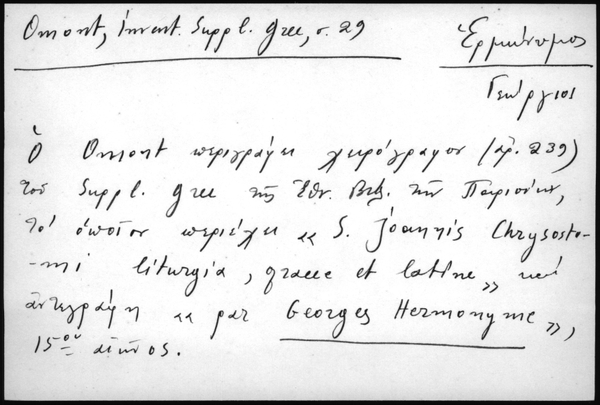 Omont, Invent. Suppl. Grec, σ. 29
Ἑρμώνυμος
Γεώργιος
Ὁ Omont περιγράφει χειρόγραφον (ἀρ. 239)
τοῦ Suppl. Grec τῆς Ἐθν. Βιβ. τῶν Παρισίων,
τὸ ὁποῖον περιέχει « S. Joannis Chrysosto-
-mi liturgia, graece et latine » καὶ
ἀντεγράφη « par Georges Hermonyme »,
15ου αἰῶνος.